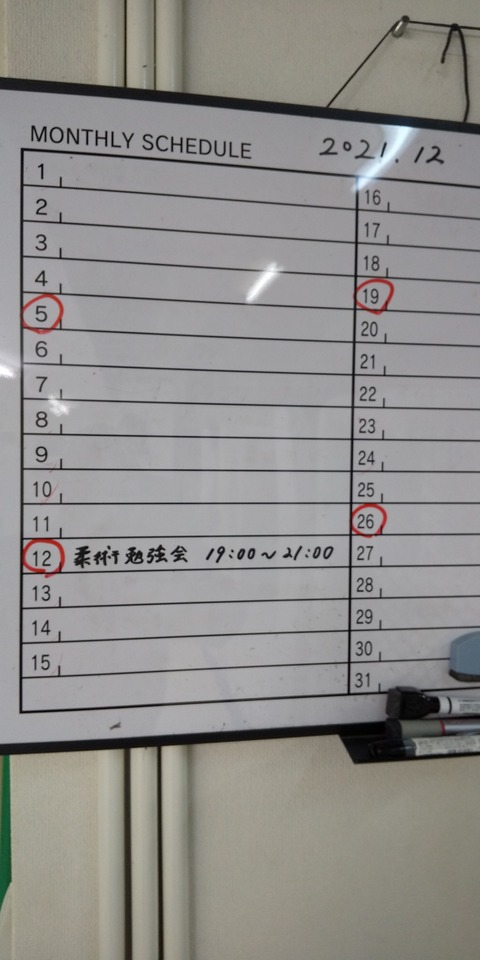 MONTHLY SCHEDULE 2021.12
1
2
3
4
5
6
7
8
9
10
11
12 柔術勉強会 19:00~21:00
13
14
15
16
17
18
19
20
21
22
23
24
25
26
27
28
29
30
31